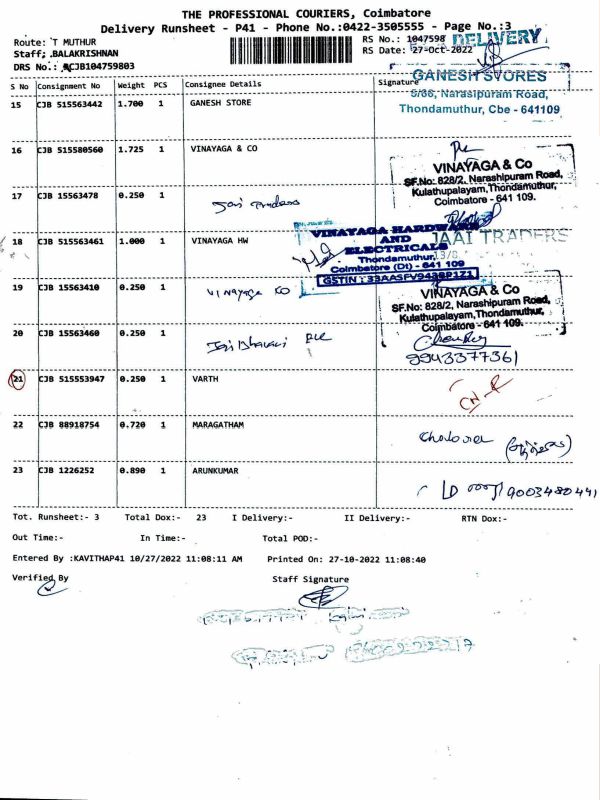 THE PROFESSIONAL COURIERS, Coimbatore
Delivery Runsheet - P41 - Phone No.:0422-3505555 - Page No.:3
Route: T MUTHUR
RS No.: 1047598
DELIVERY
Staff: BALAKRISHNAN
RS Date: 27-Oct-2022
DRS No.: CJB104759803
S No Consignment No Weight PCS Consignee Details Signature
GANESH STORES
Narasipuram Road,
Thondamuthur, Cbe - 641109
15 CJB 515563442 1.700 1 GANESH STORE
16 CJB 515580560 1.725 1 VINAYAGA & CO
VINAYAGA & Co
SF.No: 828/2, Narashipuram Road,
Kulathupalayam, Thondamuthur,
Coimbatore - 641 109.
17 CJB 15563478 0.250 1
18 CJB 515563461 1.000 1 VINAYAGA HW
VINAYAGA HARDWARE
AND
ELECTRICALS
Thondamuthur,
Coimbatore (Dt) - 641 109
JAAI TRADERS
19 CJB 15563410 0.250 1 Vinayaga Co
VINAYAGA & Co
SF.No: 828/2, Narashipuram Road,
Kulathupalayam, Thondamuthur,
Coimbatore - 641 109.
20 CJB 15563460 0.250 1
9943377361
21 CJB 515553947 0.250 1 VARTH
22 CJB 88918754 0.720 1 MARAGATHAM
23 CJB 1226252 0.890 1 ARUNKUMAR
9003480441
Tot. Runsheet:- 3 Total Dox:- 23 I Delivery:- II Delivery:- RTN Dox:-
Out Time:- In Time:- Total POD:-
Entered By :KAVITHAP41 10/27/2022 11:08:11 AM Printed On: 27-10-2022 11:08:40
Verified By Staff Signature